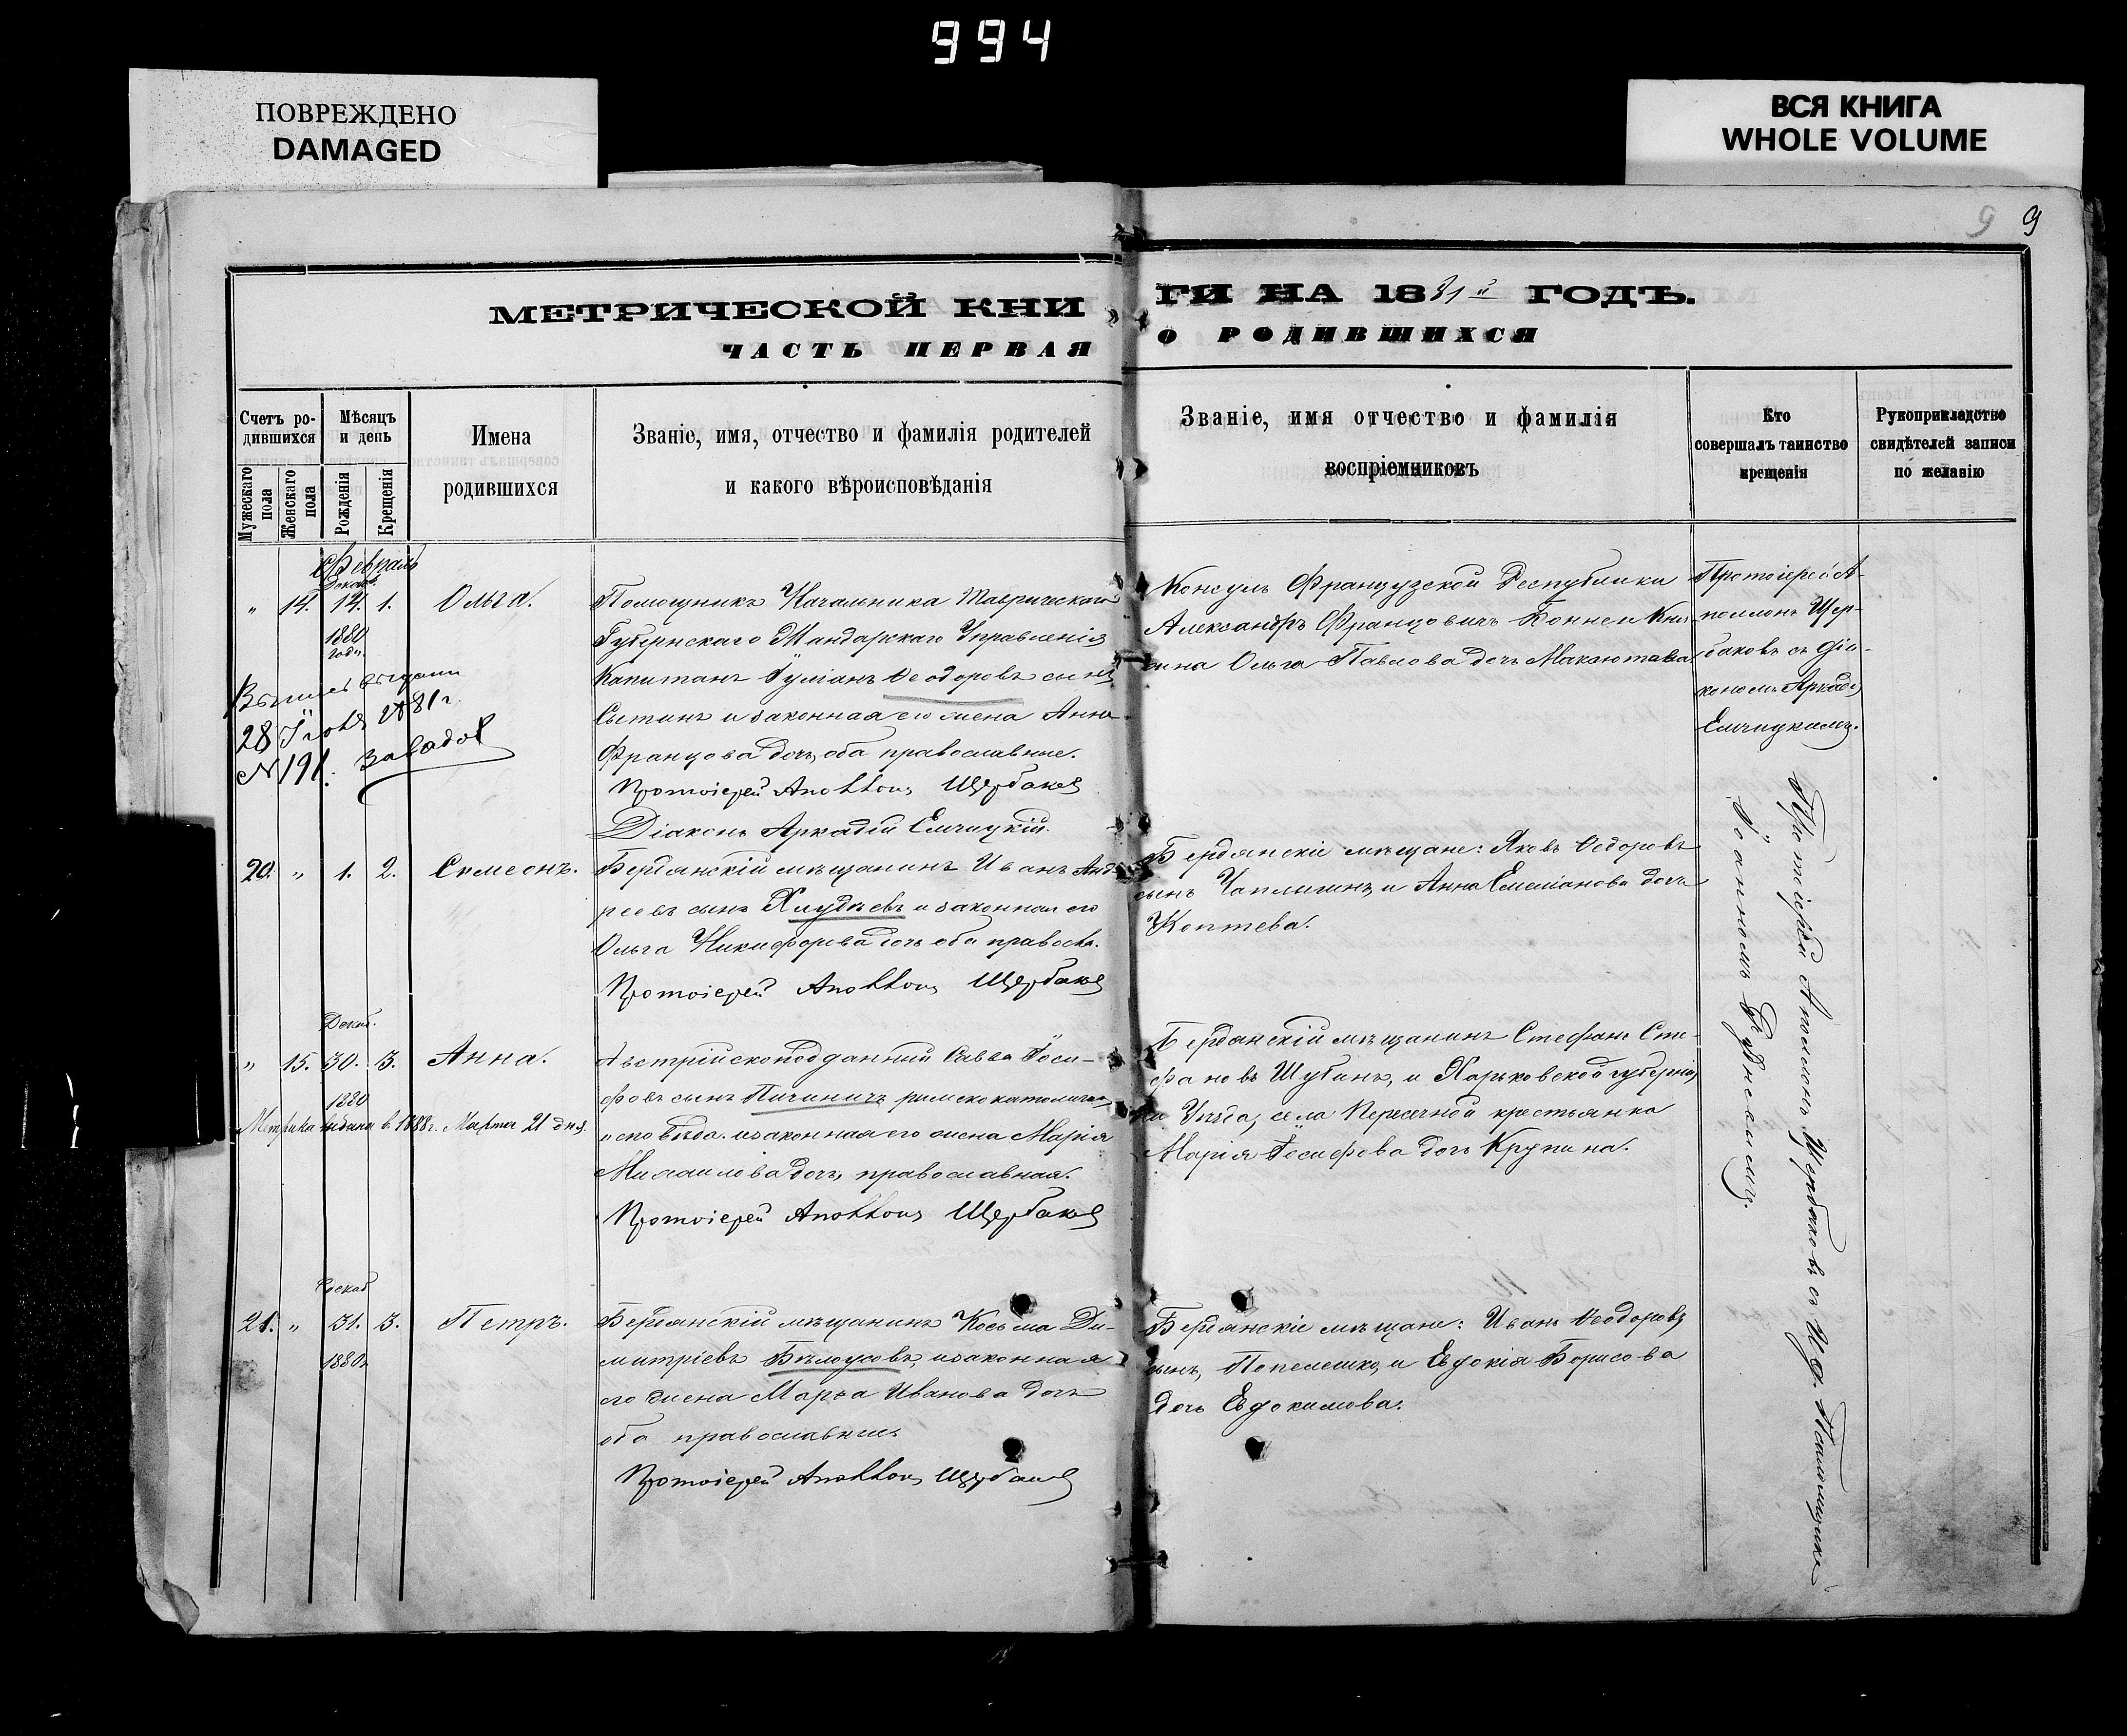 994
ПОВРЕЖДЕНО
DAMAGED
ВСЯ КНИГА
WHOLE VOLUME
9 9
МЕТРИЧЕСКОЙ КНИ
ГИ НА 1881й ГОДЪ.
ЧАСТЬ ПЕРВАЯ
О РОДИВШИХСЯ
Счетъ ро-
дившихся
Мужескаго пола
Женскаго пола
Мѣсяцъ
и день
Рожденія
Крещенія
Имена
родившихся
Званіе, имя, отчество и фамилія родителей
и какого вѣроисповѣданія
Званіе, имя отчество и фамилія
воспріемниковъ
Кто
совершалъ таинство
крещенія
Рукоприкладство
свидѣтелей записи
по желанію
Февраль
Декаб.
" 14. 14. 1. Ольга.
1880
года.
28 Іюля 1881 г.
N 191.
Помощникъ Начальника Таврическаго
Губернскаго Жандарскаго Управленія
Капитанъ Іуліанъ Ѳеодоровъ сынъ
Сытинъ и законная его жена Анна
Францова дочь, оба православные.
Протоіерей Аполлонъ Щербаковъ
Діаконъ Аркадій Елчицкій.
Консулъ Французской Республики
Александръ Францовичъ Коннели Кня-
гина Ольга Павлова дочь Максютова.
Протоіерей А-
поллонъ Щер-
баковъ съ діа-
кономъ Аркад.
Елчицкимъ.
20. " 1. 2. Симеонъ.
Бердянскій мѣщанинъ Иванъ Анд-
реевъ сынъ Хлудѣевъ и законная его
Ольга Никифорова дочь оба правосл.
Протоіерей Аполлонъ Щербаковъ
Бердянскіе мѣщане: Яковъ Ѳедоровъ
сынъ Чаплыгинъ, и Анна Емеліанова дочь
Коптева.
Декаб.
" 15. 30. 3. Анна.
1880
Метрика выдана в 1888 г. Марта 21 дня.
Австрійскоподданный Савва Іоси-
фовъ сынъ Пичиничъ римскокатолическ.
исповѣда. и законная его жена Марія
Михаилова дочь, православная.
Протоіерей Аполлонъ Щербаковъ
Бердянскій мѣщанинъ Стефанъ Сте-
фановъ Шубинъ, и Харьковской губерніи
и Уѣзда, села Пересечной крестьянка
Марія Іосифова дочь Крупина.
Декаб
21. " 31. 3. Петръ.
1880
Бердянскій мѣщанинъ Косьма Ди-
митріевъ Бѣлоусовъ, и законная
его жена Марѳа Иванова дочь
оба православные
Протоіерей Аполлонъ Щербаковъ
Бердянскіе мѣщане: Иванъ Ѳеодоровъ
сынъ, Попелешко, и Евдокія Борисова
дочь Евдокимова.
Протоіерей Аполлонъ Щербаковъ съ И. д. Псаломщика
Іоанномъ